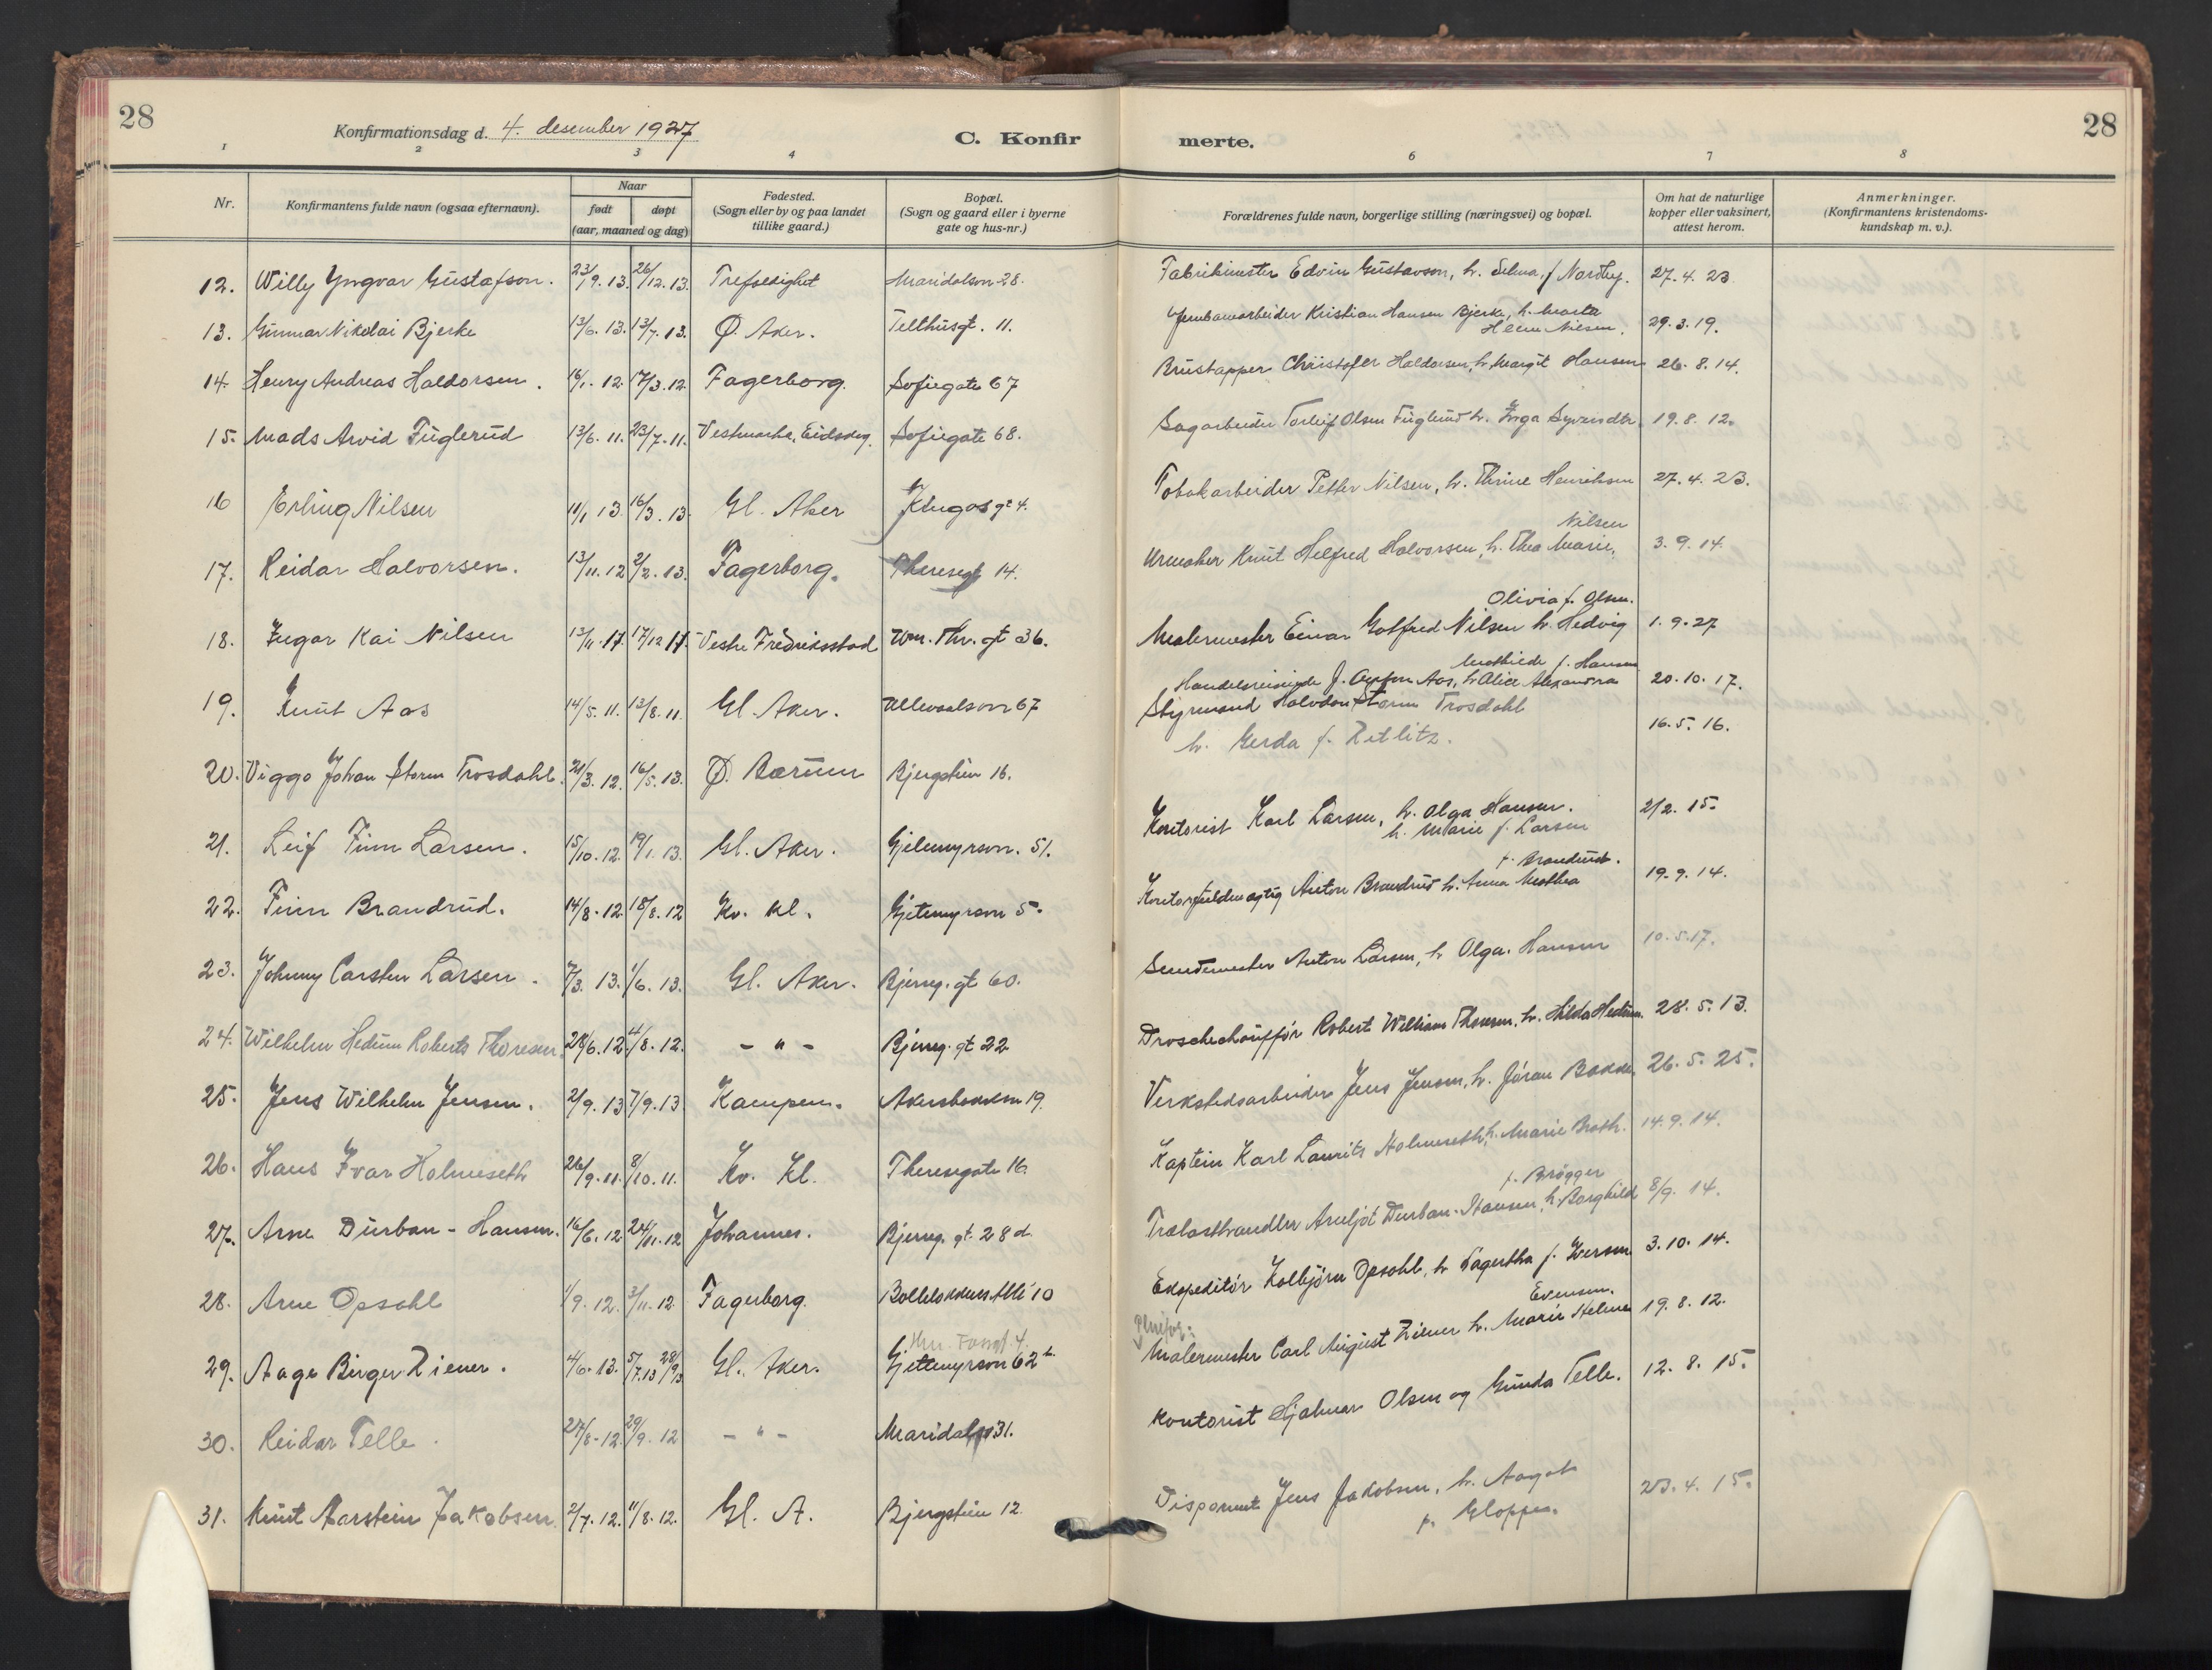 28
Konfirmationsdag d. 4. desember 1927
C. Konfir
merte.
28
1 2 3 4 6 7 8
Nr.
Konfirmantens fulde navn (ogsaa efternavn).
Naar
født døpt
(aar, maaned og dag)
Fødested.
(Sogn eller by og paa landet
tillike gaard.)
Bopæl.
(Sogn og gaard eller i byerne
gate og hus-nr.)
Forældrenes fulde navn, borgerlige stilling (næringsvei) og bopæl.
Om hat de naturlige
kopper eller vaksinert,
attest herom.
Anmerkninger.
(Konfirmantens kristendoms-
kundskap m. v.).
12. Willy Yngvar Gustafson. 23/9. 13. 26/12. 13. Trefoldighet Maridalsvn 28. Fabrikmester Edvin Gustavson, h. Selma, f Nordby. 27. 4. 23
13. Gunnar Nikolai Bjerke 13/6. 13. 13/7. 13. Ø. Aker. Telthusgt. 11. Jernbanearbeider Kristian Hansen Bjerke, h. Marta
Nilsen. 29. 3. 19.
14. Henry Andreas Haldorsen. 16/1. 12. 17/3. 12. Fagerborg. Sofiegate 67 Brustapper Christofer Haldorsen, h. Margit Hansen 26. 8. 14.
15. Mads Arvid Fuglerud 13/6. 11. 23/7. 11. Vestmarka, Eidskog. Sofiegate 68. Sagarbeider Torleif Olsen Fuglerud h. Inga Syversdtr. 19. 8. 12.
16 Erling Nilsen 11/1 13. 16/3. 13. Gl. Aker gt 4. Tobakarbeider Petter Nilsen, h. Thrine Henriksen 27. 4. 23.
17. Reidar Halvorsen. 13/11. 12 2/2. 13. Fagerborg. Theresegt 14. Nilsen
Urmaker Knut Helfred Halvorsen, h. Thea Marie, 3. 9. 14.
18. Ingar Kai Nilsen 13/11. 17. 17/12 17. Vestre Fredriksstad Wm. Thr. gt 36. Olivia f. Olsen.
Malermester Einar Gotfred Nilsen h. Hedvig 1. 9. 27
19. Knut Aas 14/5. 11. 13/8. 11 Gl. Aker. Ullevaalsvn 67 Mathilde f. Hansen
Handelsreisende J. Aas, h. Alice Alexandra 20. 10. 17.
20. Viggo Johan Storm Trosdahl. 21/3. 12. 16/5. 13. Ø. Bærum Bjergstien 16. Styrmand Halvdan Storm Trosdahl
h. Gerda f. Zetlitz. 16. 5. 16.
21. Leif Finn Larsen. 15/10. 12. 19/1. 13. Gl. Aker. Gjetemyrsvn. 51. Kontorist Karl Larsen, h. Olga Hansen. 2/2. 15.
h. Marie f. Larsen
22. Finn Brandrud. 14/8. 12. 18/8. 12 Kv. Kl. Gjetemyrsvn 5. f. Brandrud.
Kontorfuldmægtig Anton Brandrud h. Anna Mathea 19. 9. 14.
23. Johnny Carsten Larsen. 7/3. 13. 1/6. 13. Gl. Aker. Bjerreg. gt 60. Smedemester Anton Larsen, h. Olga Hansen 10. 5. 17.
24. Wilhelm Hedum Roberts Thoresen. 28/6. 12. 4/8. 12. - " - Bjerreg. gt 22 Droschechauffør Robert William Thoresen, h. Hilda Hedum. 28. 5. 13.
25. Jens Wilhelm Jensen. 2/9. 13 7/9. 13 Kampen. Akersbakken 19. Verkstedsarbeider Jens Jensen, h. Jóran Bakke. 26. 5. 25.
26. Hans Ivar Holmeseth 26/9. 11. 8/10. 11. Kv. Kl. Theresegate 16 Kaptein Karl Laurits Holmeseth, h. Marie Broth. 14. 9. 14.
27. Arne Durban-Hansen. 16/6. 12 24/11. 12 Johannes. Bjerreg. gt. 28 d. f. Brøgger
Trælasthandler Arnljot Durban-Hansen, h. Borghild 8/9. 14.
28. Arne Opsahl 1/9. 12. 3/11. 12 Fagerborg. Bolteløkkens Allé 10 Ekspeditør Kolbjørn Opsahl, h. Tagertha f. Iversen 3. 10. 14.
29. Aage Birger Ziener. 4/6. 13. 5/7. 13 28/9 13 Gl. Aker. Hm. Fossgt. 4.
Gjetemyrsvn 62 b. Evensen.
Malermester Carl August Ziener h. Marie Helene 19. 8. 12.
30. Reidar Telle. 27/8. 12. 29/9. 12 - " - Maridalsv 31. Kontorist Hjalmar Olsen og Gunda Telle. 12. 8. 15.
31. Knut Aarstein Jakobsen. 2/7. 12. 11/8. 12. Gl. A. Bjergstien 12. Disponent Jens Jakobsen, h. Aagot
f. Gloppen. 23. 4. 15.